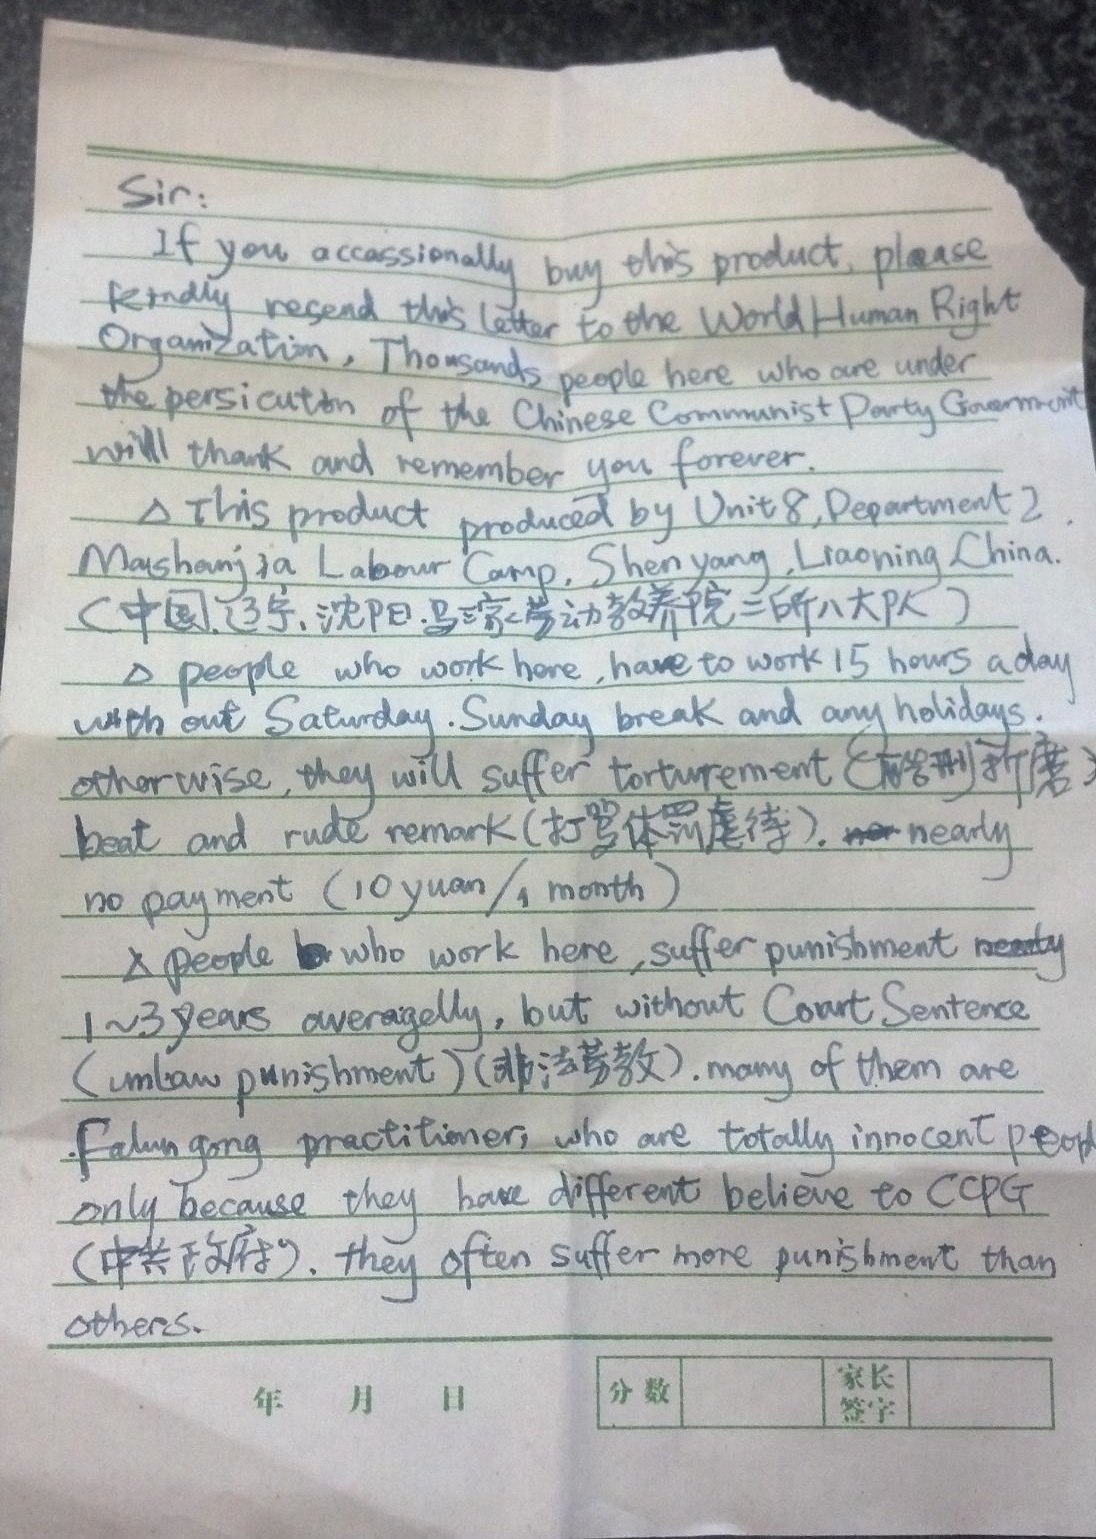 Sir:
If you accassionally buy this product, please
kindly resend this letter to the World Human Right
Organization, Thousands people here who are under
the persicution of the Chinese Communist Party Government
will thank and remember you forever.
△ This product produced by Unit 8, Department 2,
Mashanjia Labour Camp, Shenyang, Liaoning China.
(中国.辽宁.沈阳.马三家劳动教养院二所八大队)
△ people who work here, have to work 15 hours a day
with out Saturday. Sunday break and any holidays.
otherwise, they will suffer torturement (酷刑折磨)
beat and rude remark (打骂体罚虐待). nearly
no payment (10 yuan/1 month)
△ people who work here, suffer punishment
1~3 years averagelly, but without Court Sentence
(unlaw punishment) (非法劳教). many of them are
Falun gong practitioner, who are totally innocent people
only because they have different believe to CCPG
(中共政府). they often suffer more punishment than
others.
年 月 日
分数 家长签字